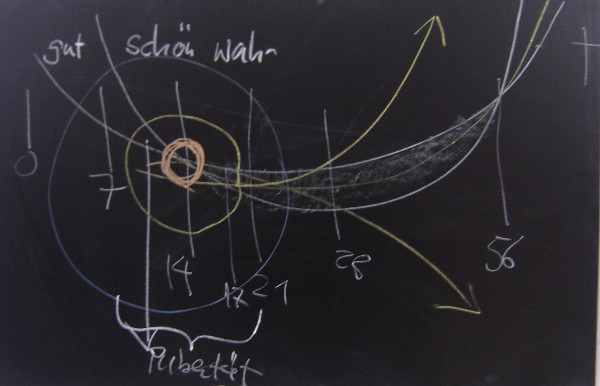 gut schön wahr
0
7
14
17 21
28
56
Pubertät